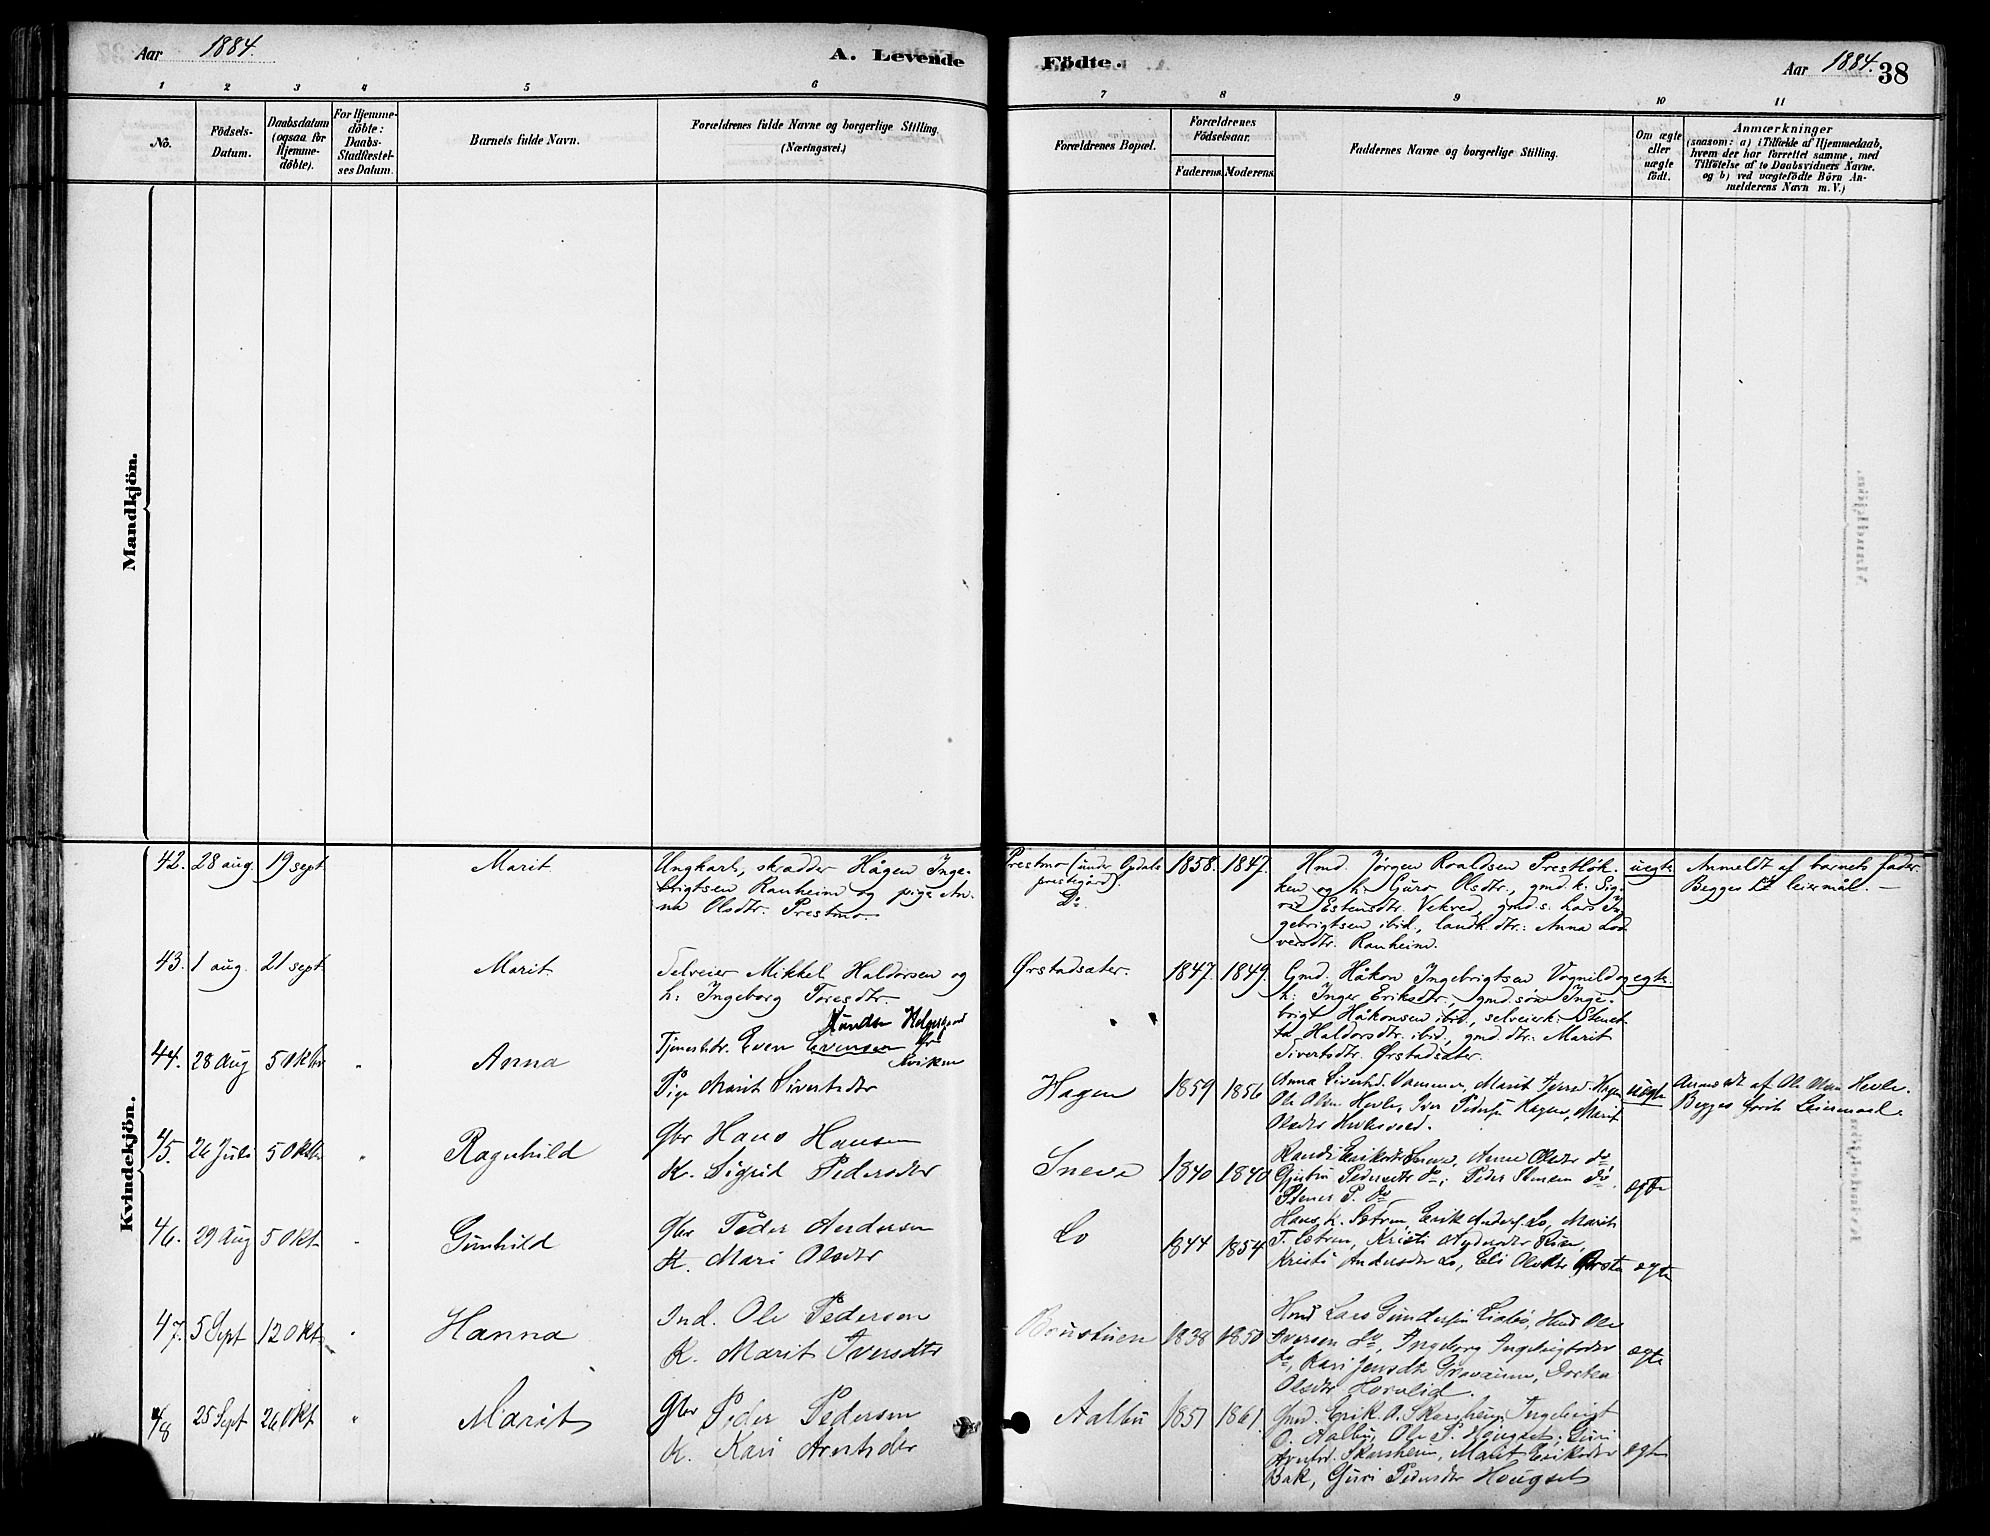 Aar 1884.
A. Levende
Födte.
Aar 1884. 38
1 2 3 4 5 6 7 8 9 10 11
No.
Födsels-
Datum.
Daabsdatum
(ogsaa for
Hjemme-
döbte).
For Hjemme-
döbte:
Daabs-
Stadfæstel-
ses Datum.
Barnets fulde Navn.
Forældrenes fulde Navne og borgerlige Stilling.
(Næringsvei.)
Forældrenes Bopæl.
Forældrenes
Födselsaar.
Faderens. Moderens.
Faddernes Navne og borgerlige Stilling.
Om ægte
eller
uægte
födt.
Anmærkninger
(saasom: a) i Tilfælde af Hjemmedaab,
hvem der har forrettet samme, med
Tilföielse af to Daabsvidners Navne.
og b) ved uægtefödte Börn An-
melderens Navn m. V.)
Mandkjön.
Kvindekjön.
42. 28 aug. 19 sept. Marit.
Ungkarl, skrædder Hågen Inge-
brigtsen Ranheim og pige An-
na Olsdtr. Prestmo
Prestmo (under Opdals
prestegård).
Do.
1858. 1847.
Hmd. Jörgen Roaldsen Prestløk-
ken og h: Guro Olsdtr., gmd.k: Sig-
rid Estensdtr. Vekved, gmd.s: Lars In-
gebrigtsen ibid., landh.dtr.: Anna Lod-
versdtr. Ranheim.
uegte
Anmeldt af barnets fader.
Begges leiermål. —
43. 1 aug. 21 sept. Marit.
Selveier Mikkel Haldorsen og
h: Ingeborg Toresdtr.
Ørstadsæter.
1847. 1849.
Gmd. Håkon Ingebrigtsen Vognild og
h: Inger Eriksdtr., gmd.søn Inge-
brigt Håkonsen ibid., selveierk:
Haldorsdtr. ibid, gmd.dtr: Marit
Sivertsdtr. Ørstadsæter.
egte.
44. 28 Aug 5 Oktbr " Anna
Tjenestedr. Even Evensen
Pige Marit Sivertsdtr
Hagen 1859 1856
Anna Sivertsd. Vammer, Marit Hagen
Ole Olsen Hevle, Iver Peders. Hagen, Marit
Olsdtr
uegte
Anmeldt af Ole Olsen Hevle.
Begges første Leiermaal.
45. 26 Juli 5 Oktbr " Ragnhild
Gbr Hans Hansen
K. Sigrid Pedersdtr
Sneve 1840 1840
Randi Eriksdtr Sneve, Anne Olsdtr do
Pedersdtr do, Peder Stensen do.
Stener P. do
egte
46. 29 Aug 5 Okt. " Gunhild
Gbr Peder Andersen
K. Mari Olsdtr
Lo 1844 1854
Hans H. Sætren, Erik Anders. Lo, Marit
T. Sætren, Kristi Rise,
Kristi Andersdtr Lo, Eli Olsdtr
egte
47. 5 Sept 12 Okt. " Hanna
Ind. Ole Pedersen
K. Marit Iversdtr
Bøustuen 1838 1850
Hmd Lars Gundersen Liabø, Hmd Ole
Iversen do, Ingeborg Ingebrigtsdtr
do, Kari Jensdtr Dortea
Olsdtr Horvlid.
egte
48 25 Sept 26 Okt " Marit
Gbr Peder Pedersen
K. Kari Arntsdtr
Aalbu 1851 1861.
Gmd. Erik A. Skarsheim, Ingebrigt
O. Aalbu, Ole P. Hougset, Guri
Arntsd. Skarsheim, Marit Eriksdtr
Bak, Guri Pedersdtr Hougset
egte